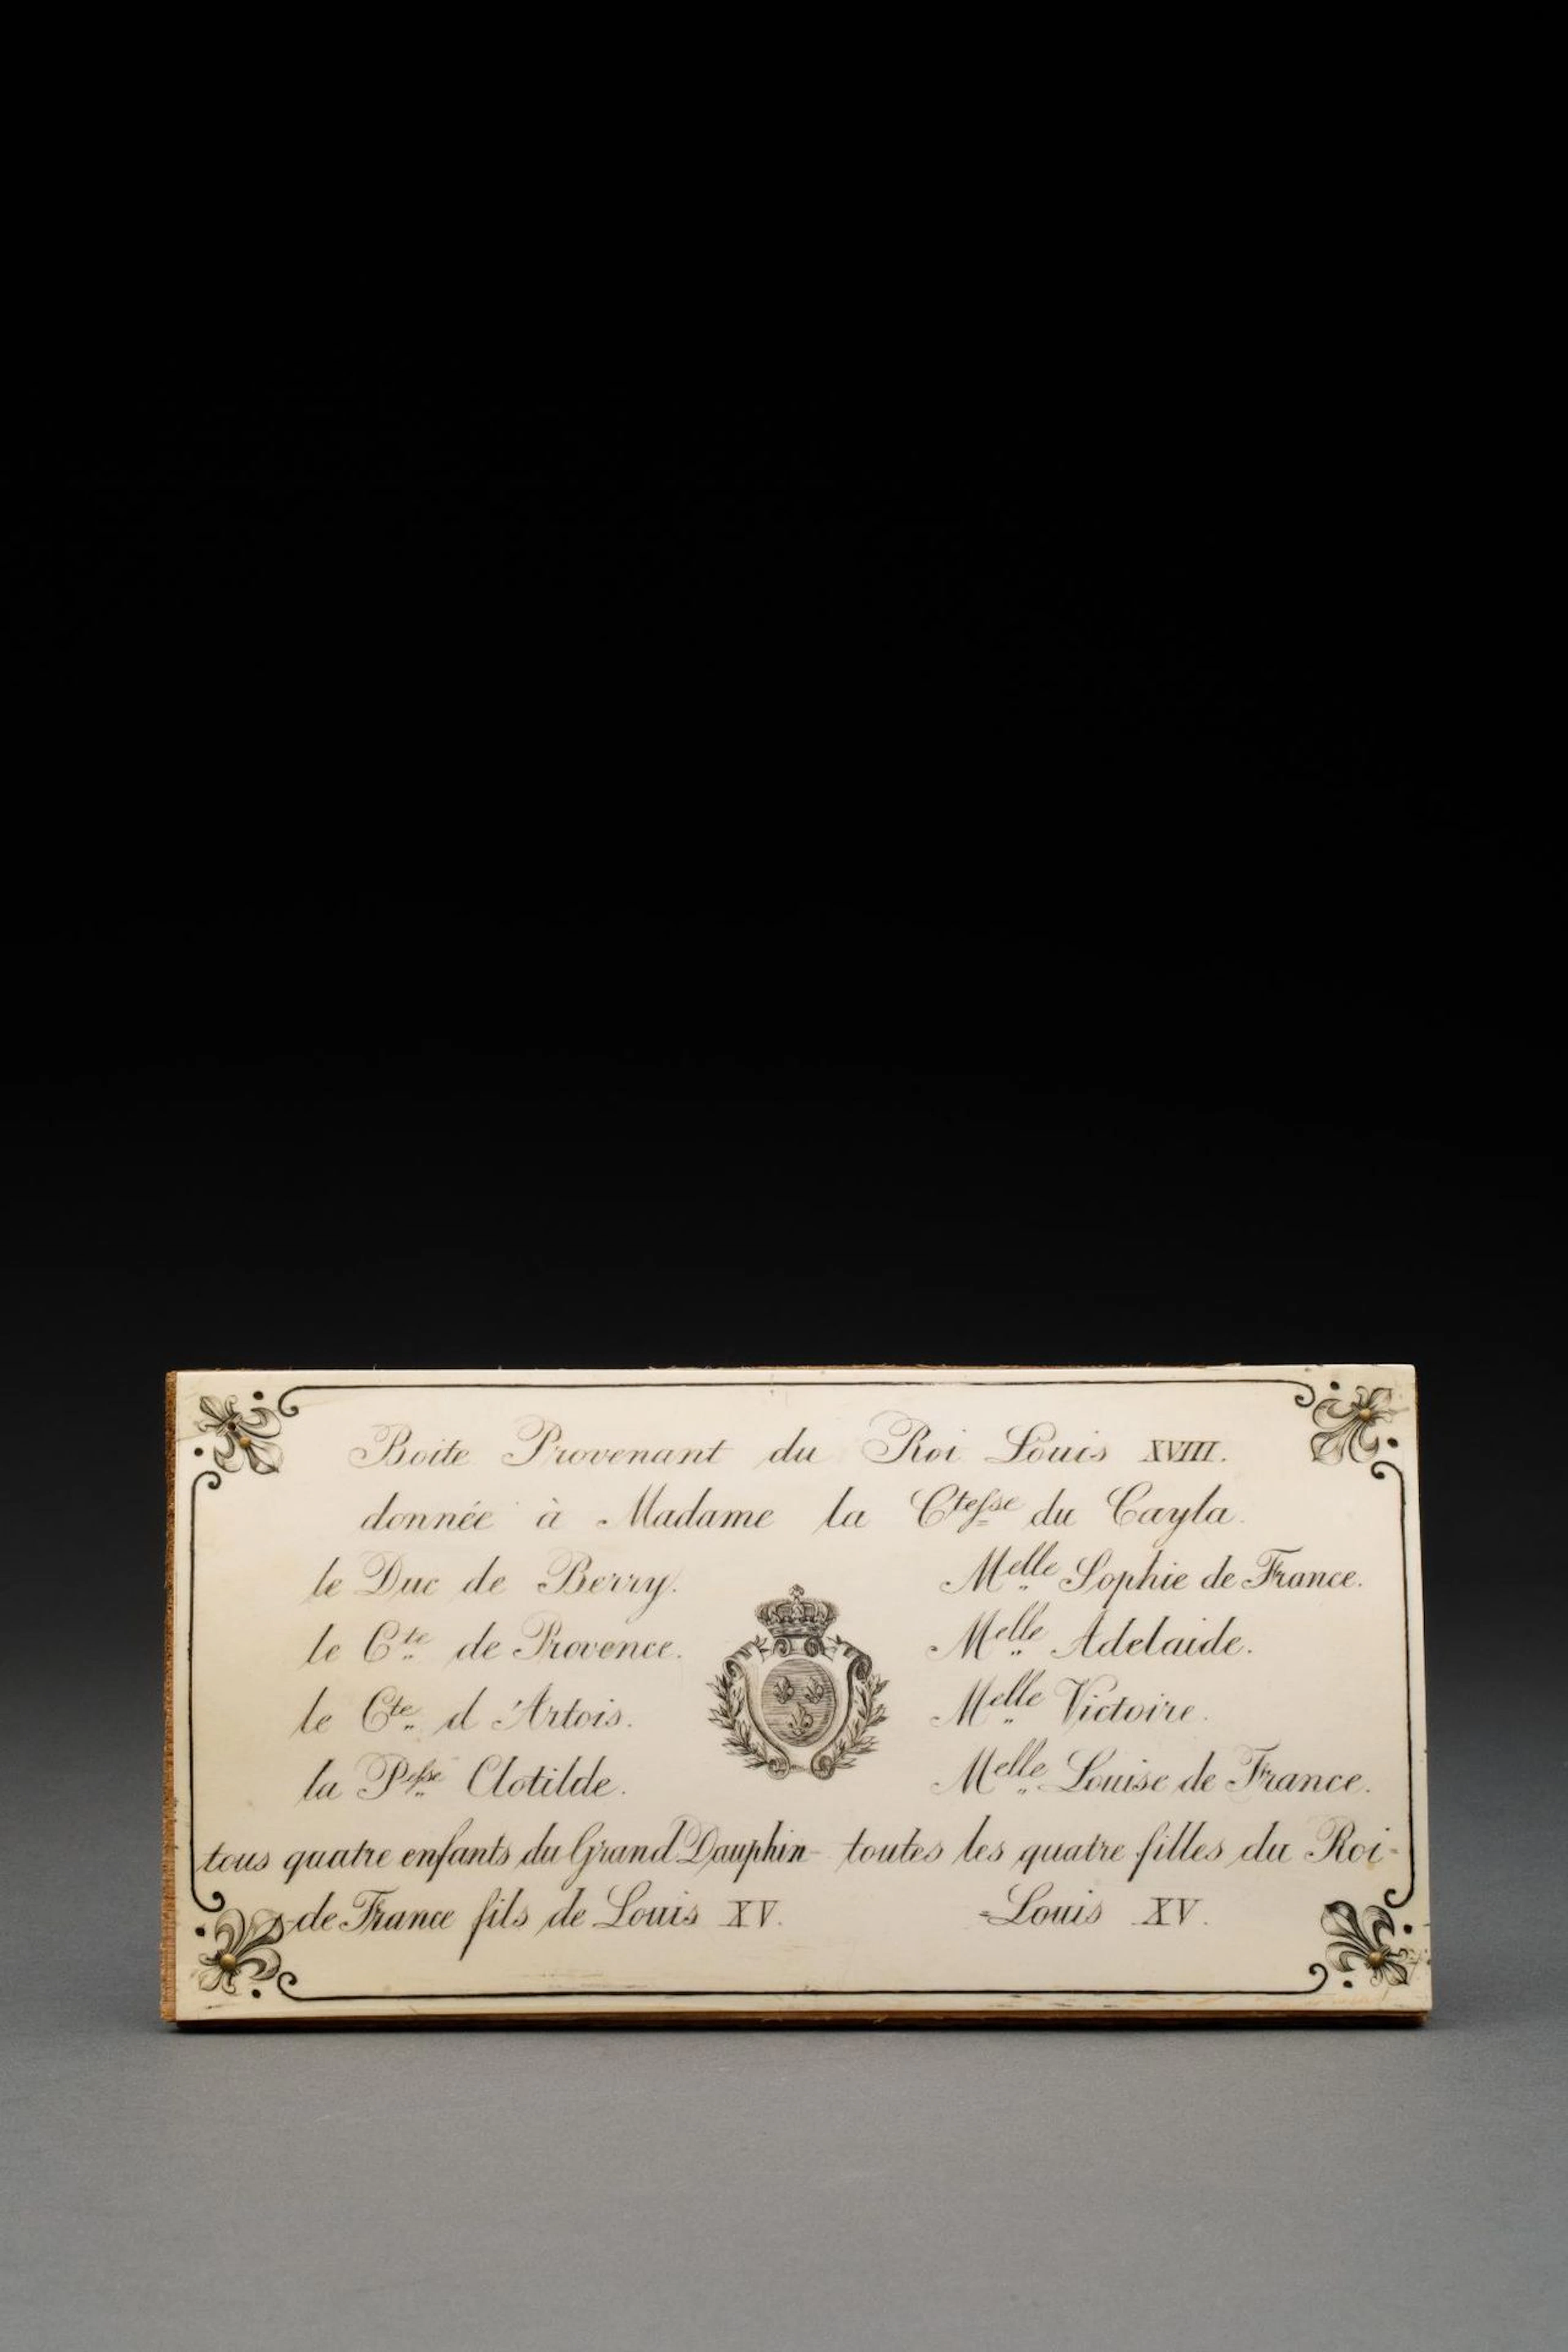 Boite Provenant du Roi Louis XVIII.
donnée à Madame la Ctesse du Cayla.
le Duc de Berry.
le Cte de Provence.
le Cte d'Artois.
la Pesse Clotilde.
tous quatre enfants du Grand Dauphin
de France fils de Louis XV.
Melle Sophie de France.
Melle Adelaide.
Melle Victoire.
Melle Louise de France.
toutes les quatre filles du Roi-
-Louis XV.